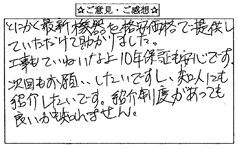 ☆ご意見・ご感想☆
とにかく最新機器を格安価格で提供し
ていただけて助かりました。
工事もていねいなよ10年保証も安心です。
次回もお願いしたいですし、知人にも
紹介したいです。紹介制度があっても
良いかも知れません。